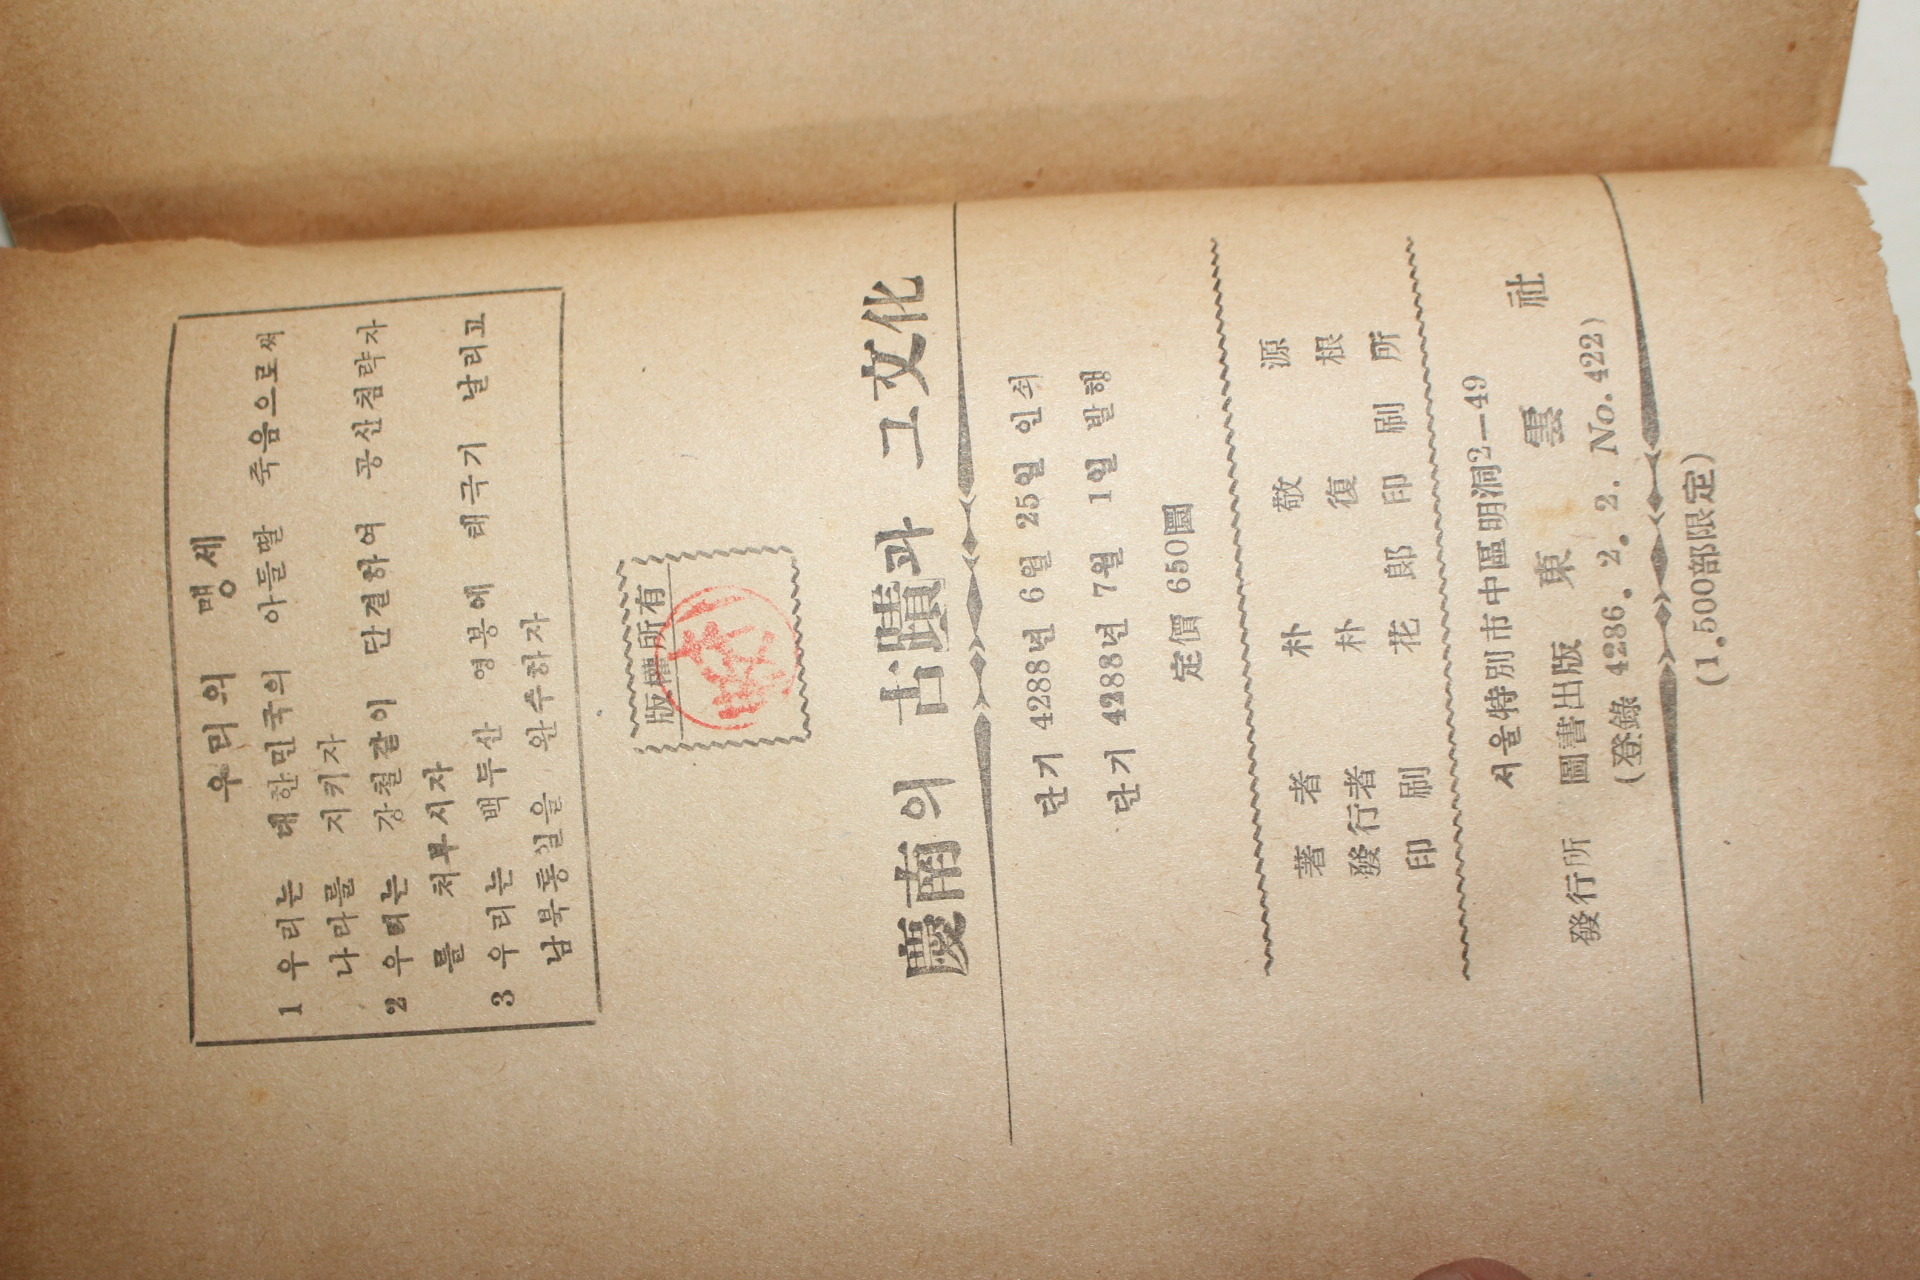 우리의 맹세
1 우리는 대한민국의 아들딸 죽음으로써
나라를 지키자
2 우리는 강철같이 단결하여 공산침략자
를 처부시자
3 우리는 백두산 영봉에 태극기 날리고
남북통일을 완수하자
版權所有
慶南의 古蹟과 그文化
단기 4288년 6월 25일 인쇄
단기 4288년 7월 1일 발행
定價 650圜
著者 朴敬源
發行者 朴復根
印刷 花郞印刷所
서울特別市中區明洞2—49
發行所 圖書出版 東雲社
(登錄 4286. 2. 2. No. 422)
(1,500部限定)